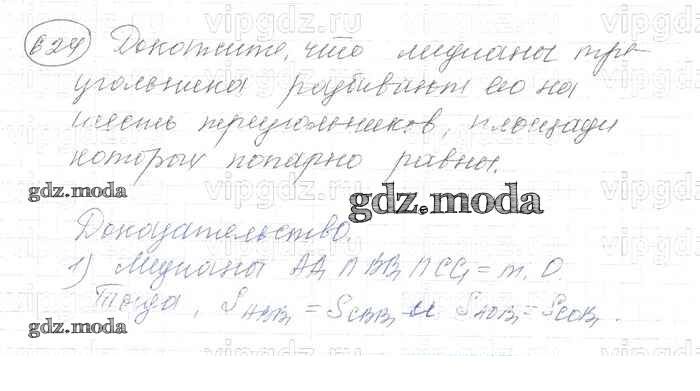 624 Докажите, что медианы тре-
угольника разбивают его на
шесть треугольников, площади
которых попарно равны.
gdz.moda
gdz.moda
Доказательство.
1) Медианы AA₁ ∩ BB₁ ∩ CC₁ = т. O.
Тогда, S_ABB₁ = S_CBB₁ и S_AOB₁ = S_COB₁.
gdz.moda